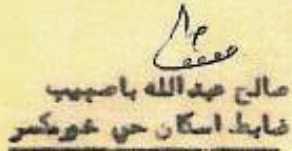 صالح عبدالله باصبيب
ضابط اسكان حي خورمكسر